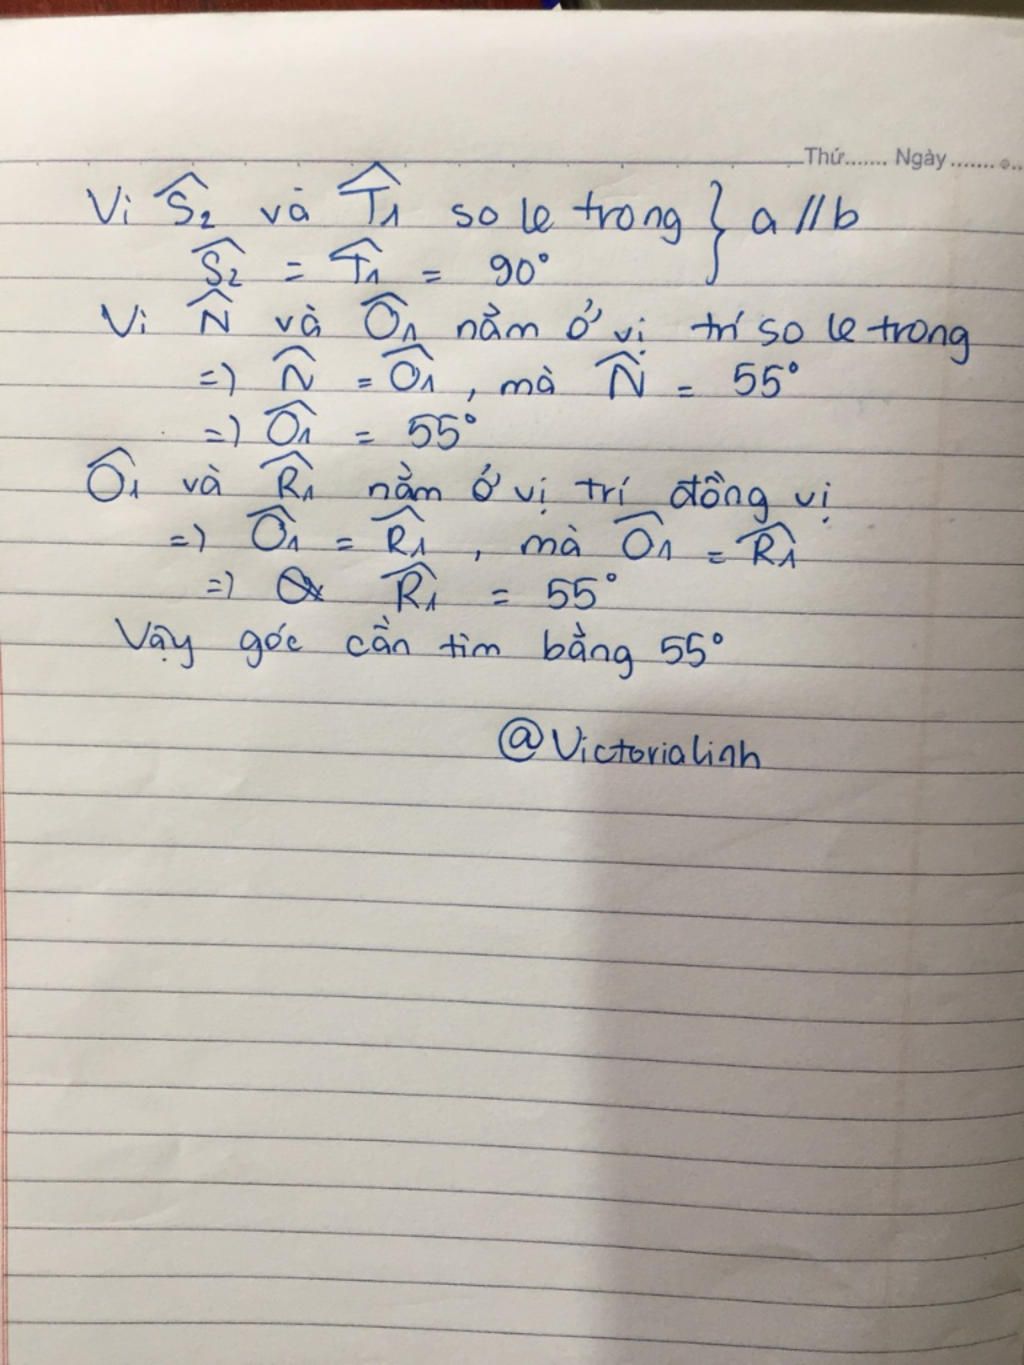 Thứ....... Ngày.......
Vì Ŝ₂ và T̂₁ so le trong } a // b
Ŝ₂ = T̂₁ = 90°
Vì N̂ và Ô₁ nằm ở vị trí so le trong
=) N̂ = Ô₁ , mà N̂ = 55°
=) Ô₁ = 55°
Ô₁ và R̂₁ nằm ở vị trí đồng vị
=) Ô₁ = R̂₁ , mà Ô₁ = R̂₁
=) R̂₁ = 55°
Vậy góc cần tìm bằng 55°
@Victorialinh